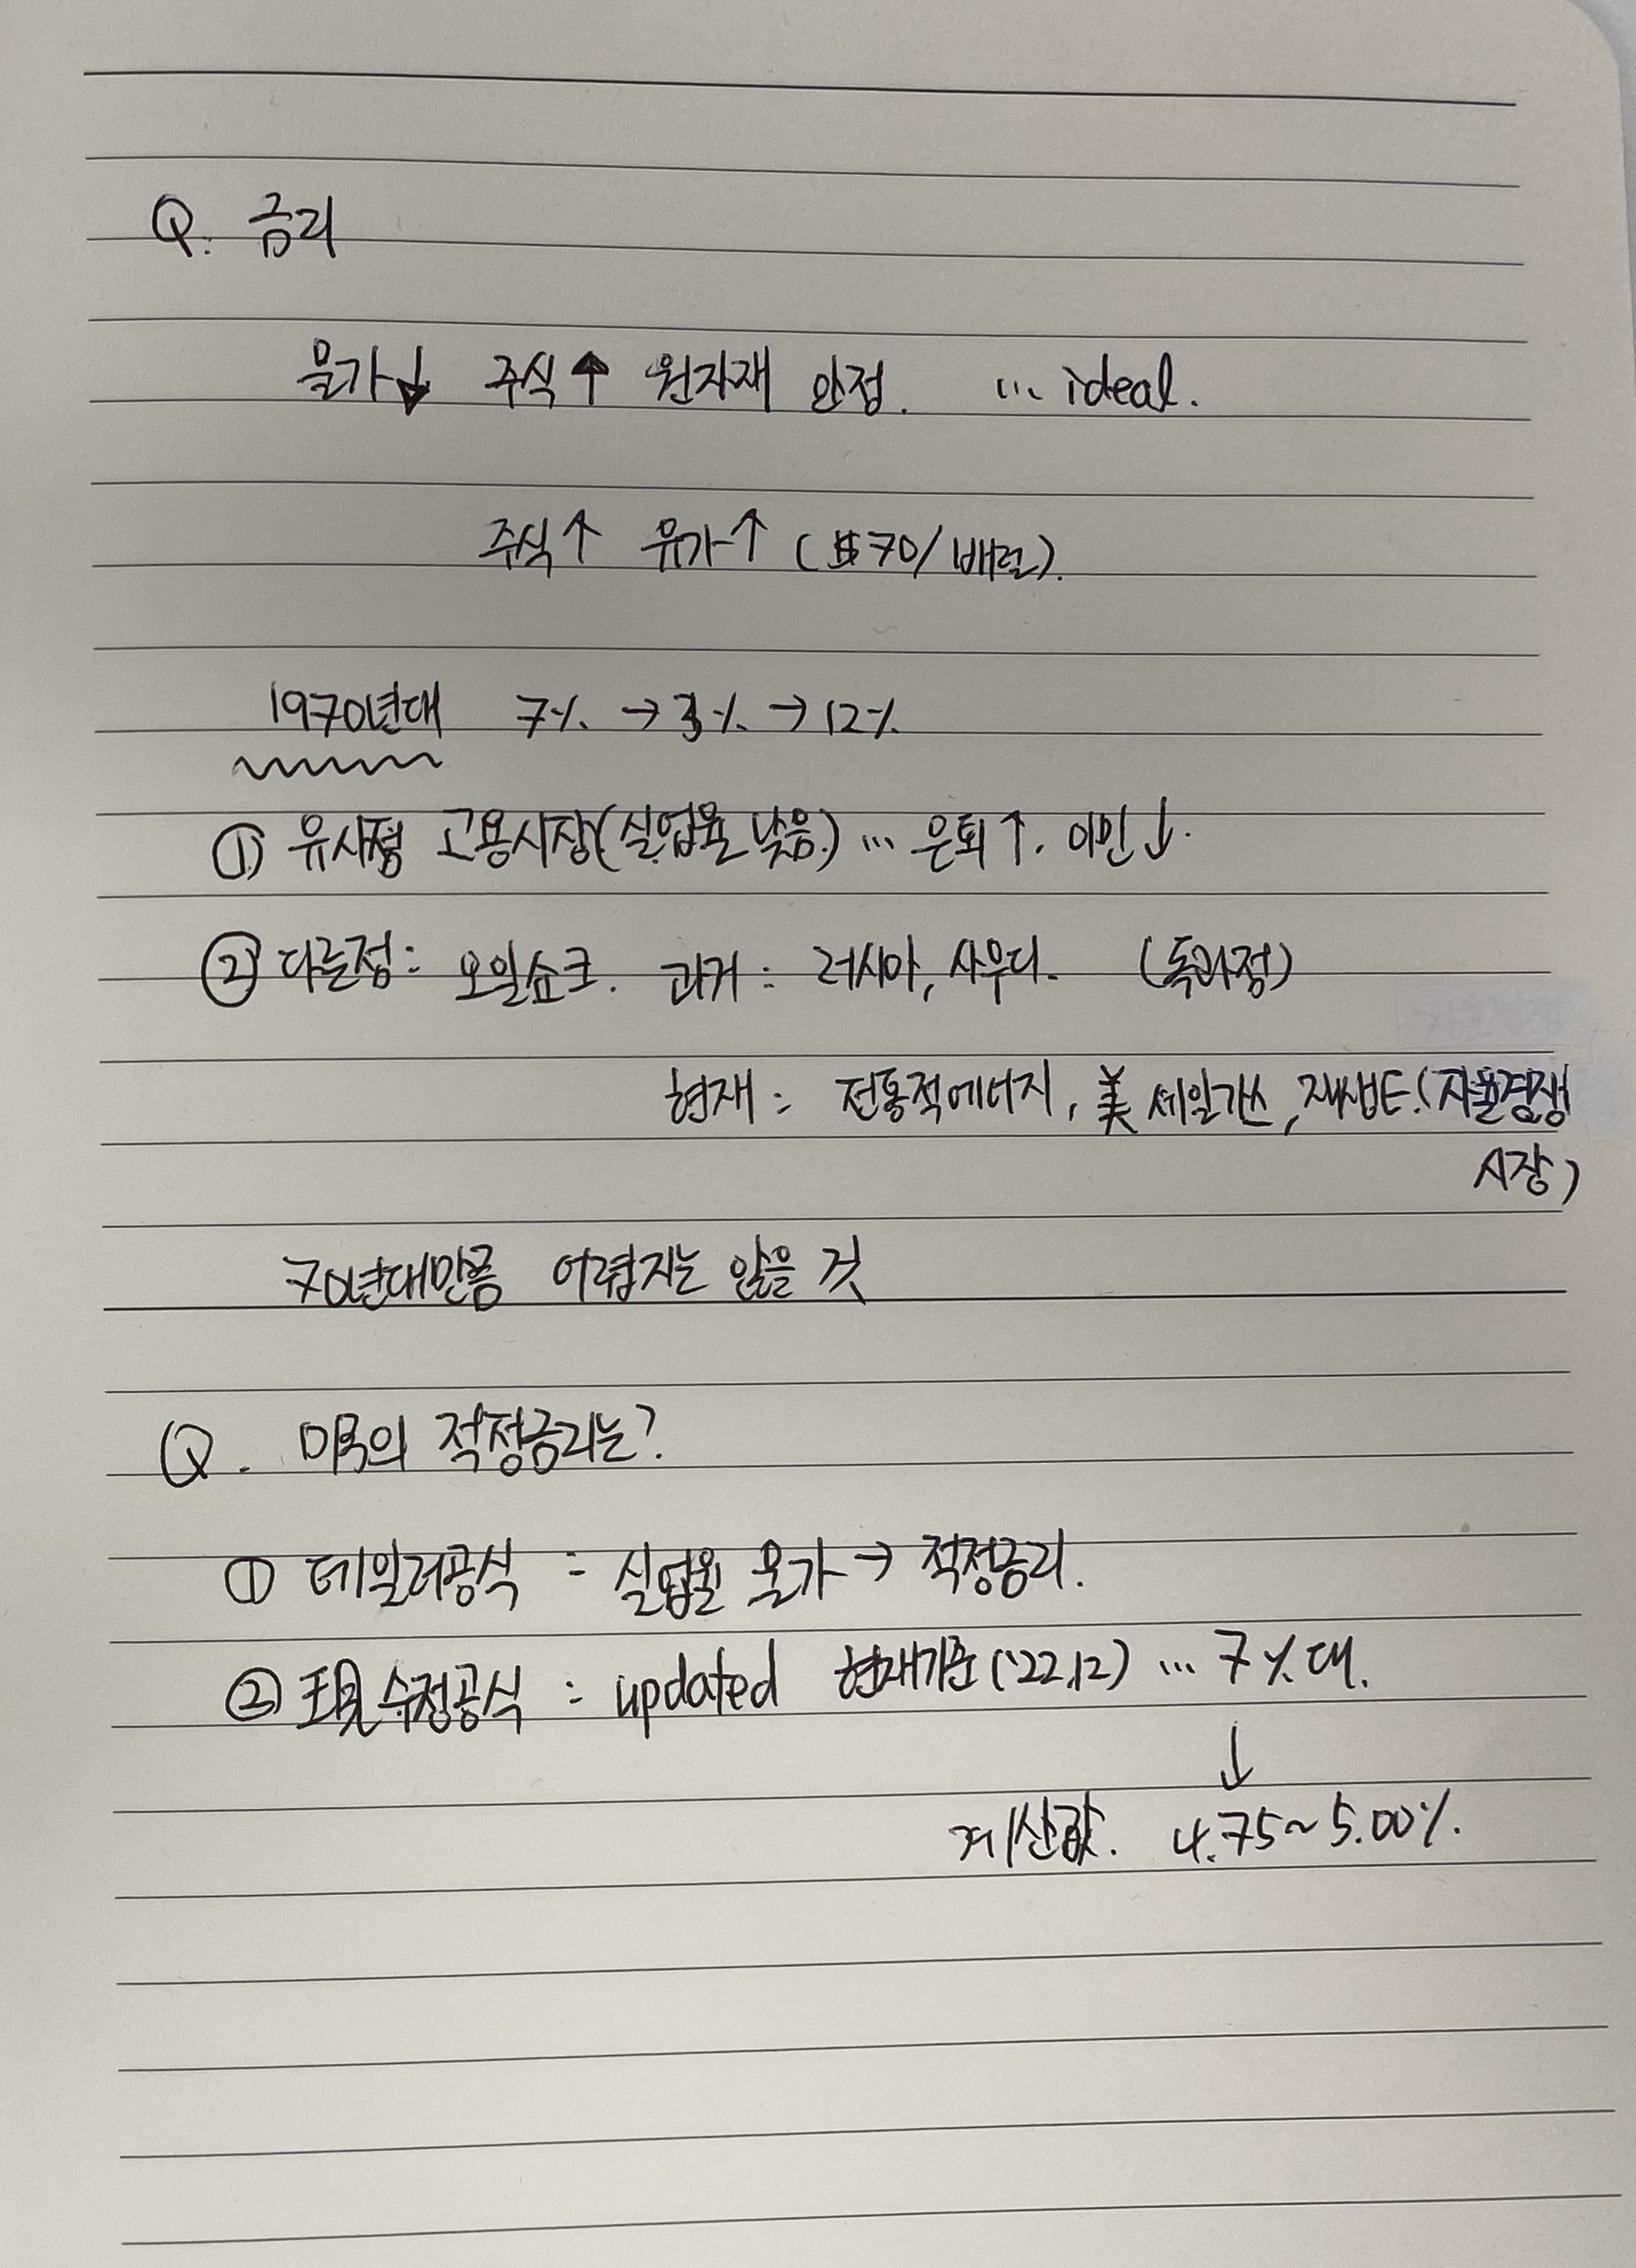 Q. 금리
물가↓ 주식↑ 원자재 안정. … ideal.
주식↑ 유가↑ ($70/배럴).
1970년대 7% → 3% → 12%
① 유사점 고용시장(실업율 낮음) … 은퇴↑. 이민↓.
② 다른점: 오일쇼크. 과거: 러시아, 사우디. (독과점)
현재: 전통적에너지, 美 셰일가스, 재생E. (자율경쟁
시장)
70년대만큼 어렵지는 않을 것
Q. 미국의 적정금리는?
① 테일러공식 : 실업율 물가 → 적정금리.
② 수정공식 : updated 현재기준('22.12) … 7%대.
↓
계산값. 4.75~5.00%.